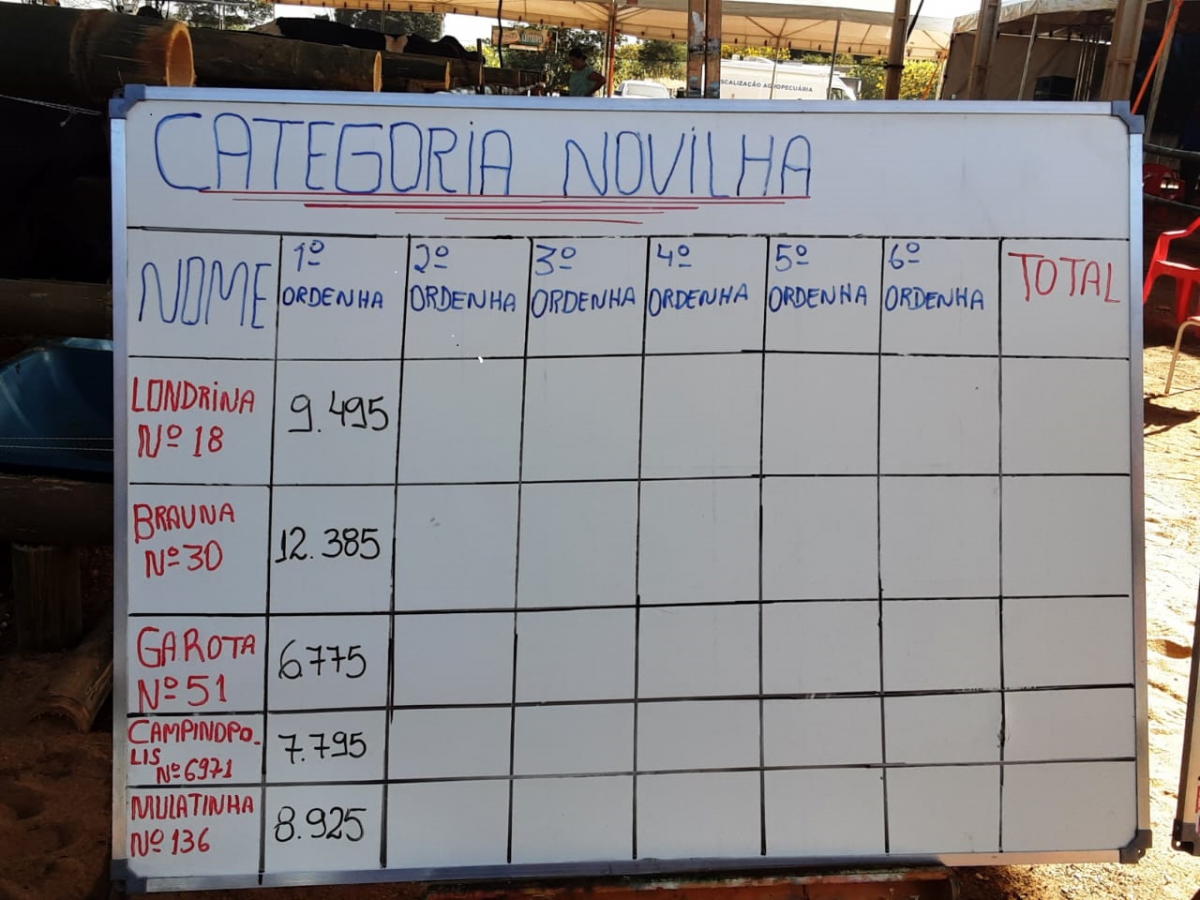 SCALIZAÇÃO AGROPECUÁRIA
CATEGORIA NOVILHA
NOME 1º ORDENHA 2º ORDENHA 3º ORDENHA 4º ORDENHA 5º ORDENHA 6º ORDENHA TOTAL
LONDRINA Nº 18 9.495
BRAUNA Nº 30 12.385
GAROTA Nº 51 6.775
CAMPINDPO.
LIS Nº 6971 7.795
MULATINHA Nº 136 8.925